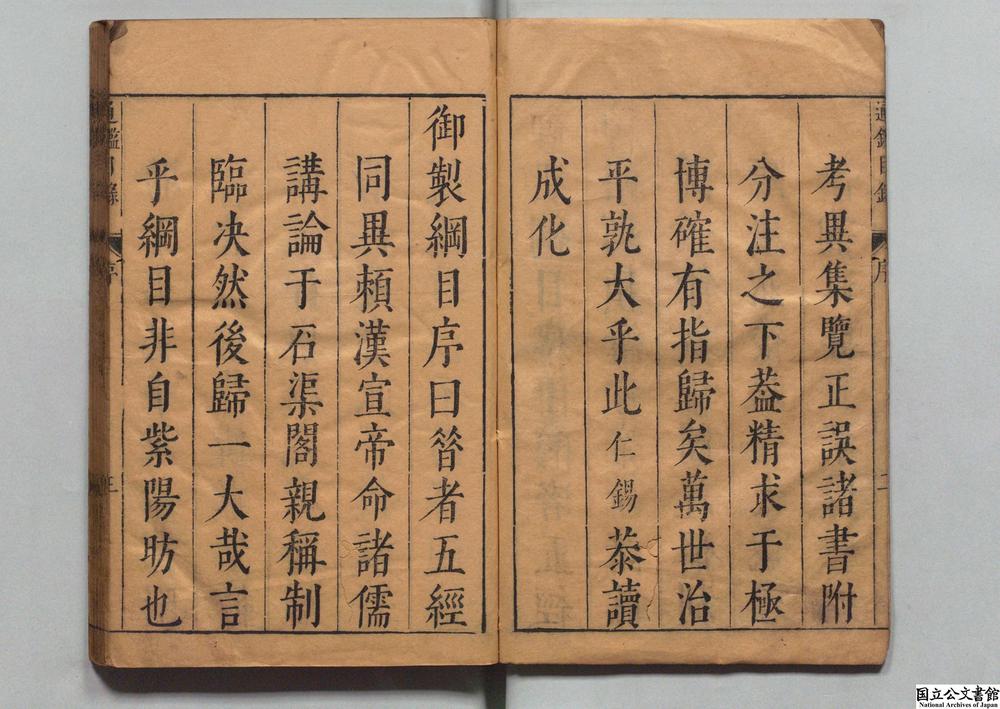 考異集覽正誤諸書附
分注之下葢精求于極
博確有指歸矣萬世治
平孰大乎此仁錫恭讀
成化
御製綱目序曰昝者五經
同異頼漢宣帝命諸儒
講論于石渠閣親稱制
臨决然後歸一大哉言
乎綱目非自紫陽昉也
通鑑目錄
序
二
通鑑目錄
序
三
国立公文書館
National Archives of Japan